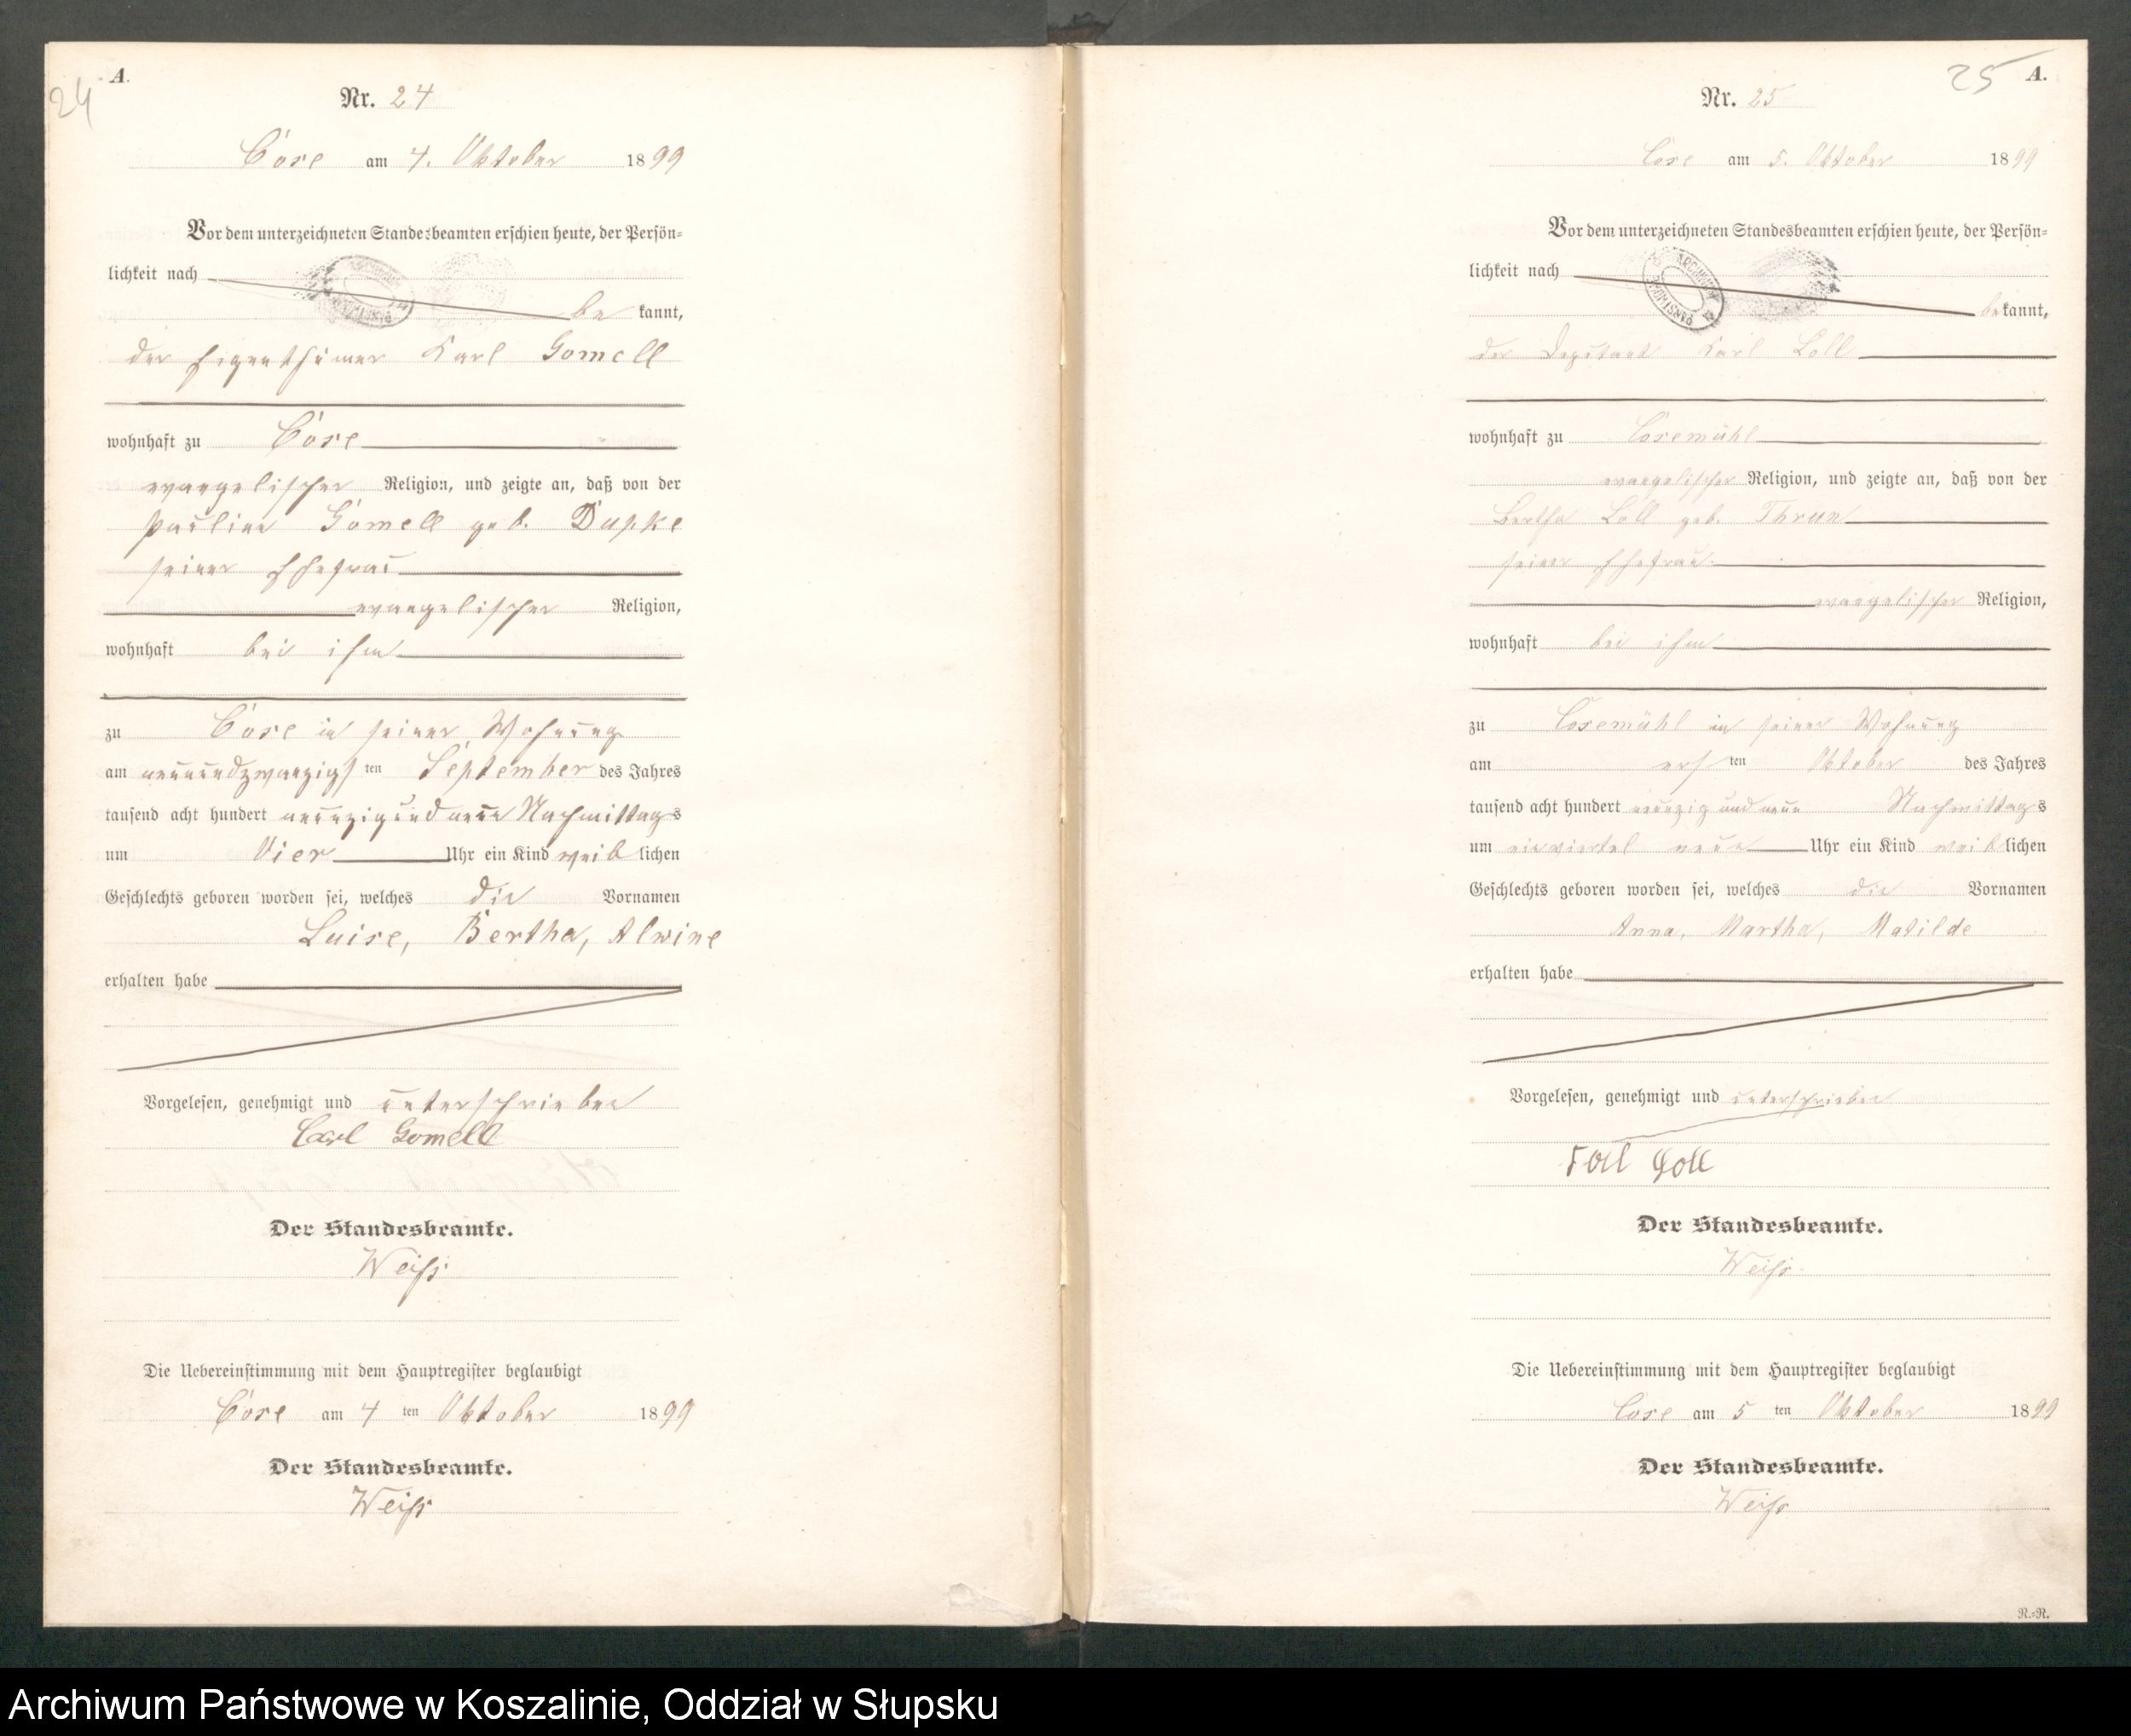 24
A.
Nr. 24
Cose am 4. Oktober 1899
Vor dem unterzeichneten Standesbeamten erschien heute, der Persön-
lichkeit nach
be kannt,
der Eigenthümer Karl Gomell
wohnhaft zu Cose
evangelischer Religion, und zeigte an, daß von der
Pauline Gomell geb. Dupke
seiner Ehefrau
evangelischer Religion,
wohnhaft bei ihm
zu Cose in seiner Wohnung
am neunundzwanzigsten September des Jahres
tausend acht hundert neunzig und neun Nachmittags
um Vier Uhr ein Kind weiblichen
Geschlechts geboren worden sei, welches die Vornamen
Luise, Bertha, Alwine
erhalten habe
Vorgelesen, genehmigt und unterschrieben
Carl Gomell
Der Standesbeamte.
Weiß
Die Uebereinstimmung mit dem Hauptregister beglaubigt
Cose am 4 ten Oktober 1899
Der Standesbeamte.
Weiß
25
A.
Nr. 25
Cose am 5. Oktober 1899
Vor dem unterzeichneten Standesbeamten erschien heute, der Persön-
lichkeit nach
bekannt,
der Deputant Karl Loll
wohnhaft zu Cosemühl
evangelischer Religion, und zeigte an, daß von der
Bertha Loll geb. Thrun
seiner Ehefrau
evangelischer Religion,
wohnhaft bei ihm
zu Cosemühl in seiner Wohnung
am ersten Oktober des Jahres
tausend acht hundert neunzig und neun Nachmittags
um einviertel neun Uhr ein Kind weiblichen
Geschlechts geboren worden sei, welches die Vornamen
Anna, Martha, Matilde
erhalten habe
Vorgelesen, genehmigt und unterschrieben
Der Standesbeamte.
Weiß
Die Uebereinstimmung mit dem Hauptregister beglaubigt
Cose am 5 ten Oktober 1899
Der Standesbeamte.
Weiß
R.=R.
Archiwum Państwowe w Koszalinie, Oddział w Słupsku